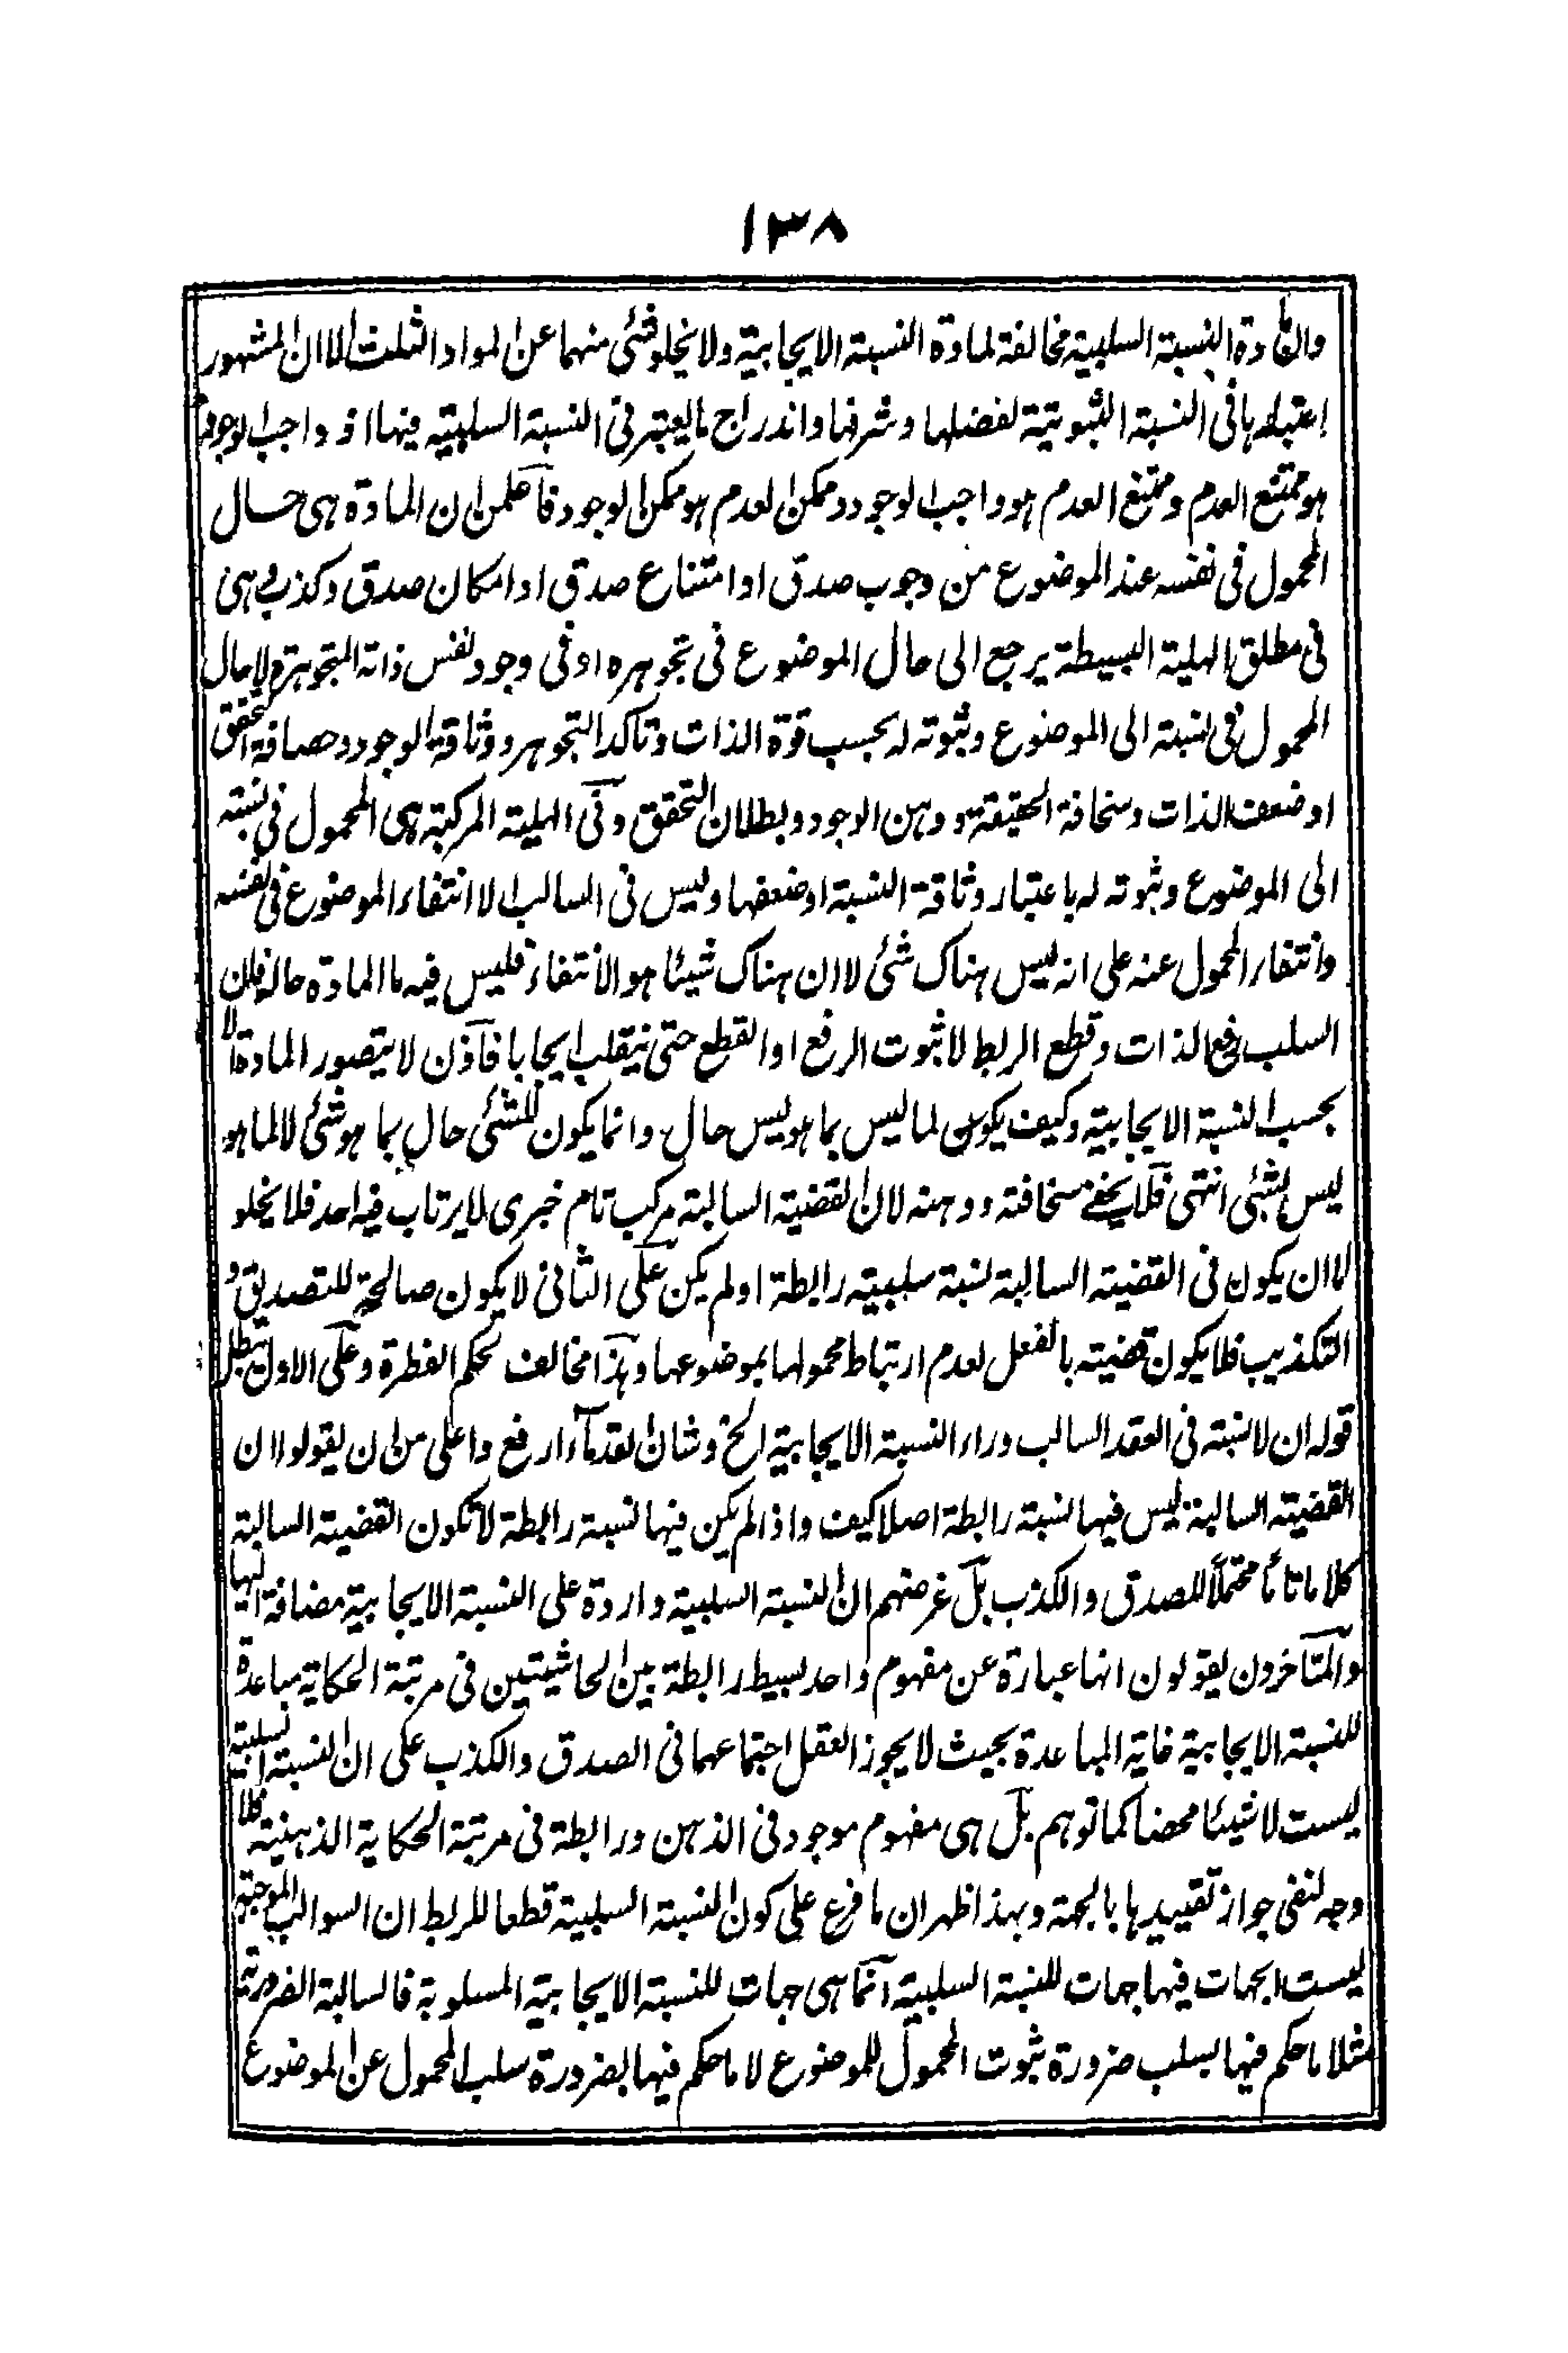 ١٣٨
وان مادة النسبة السلبية مخالفة لمادة النسبة الايجابية ولا يخلو شئ منهما عن المواد الثلث الا ان المشهور
اعتبارها فى النسبة الثبوتية لفضلها وشرفها واندراج ما يعتبر فى النسبة السلبية فيها اذ واجب الوجود
هو ممتنع العدم وممتنع العدم هو واجب الوجود وممكن العدم هو ممكن الوجود فاعلمن ان المادة هى حال
المحمول فى نفسه عند الموضوع من وجوب صدق او امتناع صدق او امكان صدق وكذب وهى
فى مطلق الهلية البسيطة يرجع الى حال الموضوع فى تجوهره او فى وجود نفس ذاته المتجوهرة ولا حال
المحمول فى نسبته الى الموضوع وثبوته له بحسب قوة الذات وتاكد التجوهر ووثاقة الوجود وحصافة التحقق
او ضعف الذات وسخافة الحقيقة ووهن الوجود وبطلان التحقق وفى الهلية المركبة هى المحمول فى نسبته
الى الموضوع وثبوته له باعتبار وثاقة النسبة او ضعفها وليس فى السالب الا انتفاء الموضوع فى نفسه
وانتفاء المحمول عنه على انه ليس هناك شئ لا ان هناك شيئا هو الانتفاء فليس فيه ما المادة حاله فان
السلب رفع الذات وقطع الربط لا ثبوت الرفع او القطع حتى ينقلب ايجابا فاذن لا يتصور المادة الا
بحسب النسبة الايجابية وكيف يكون لما ليس بما هو ليس حال وانما يكون للشئ حال بما هو شئ لا لما هو
ليس بشئ انتهى فلا يخفى سخافته ووهنه لان القضية السالبة مركب تام خبرى لا يرتاب فيه احد فلا يخلو
اما ان يكون فى القضية السالبة نسبة سلبية رابطة او لم يكن على الثانى لا يكون صالحة للتصديق و
التكذيب فلا يكون قضية بالفعل لعدم ارتباط محمولها بموضوعها وهذا مخالف لحكم الفطرة وعلى الاول يبطل
قوله ان لا نسبة فى العقد السالب وراء النسبة الايجابية الخ وشان القدماء ارفع واعلى من ان يقولوا ان
القضية السالبة ليس فيها نسبة رابطة اصلا كيف واذا لم يكن فيها نسبة رابطة لا تكون القضية السالبة
كلاما تاما محتملا للصدق والكذب بل غرضهم ان النسبة السلبية واردة على النسبة الايجابية مضافة اليها
والمتاخرون يقولون انها عبارة عن مفهوم واحد بسيط رابطة بين الحاشيتين فى مرتبة الحكاية مباعدة
للنسبة الايجابية غاية المباعدة بحيث لا يجوز العقل اجتماعهما فى الصدق والكذب على ان النسبة السلبية
ليست لا شيئا محضا كما توهم بل هى مفهوم موجود فى الذهن ورابطة فى مرتبة الحكاية الذهنية فلا
وجه لنفى جواز تقييدها بالجهة وبهذا ظهر ان ما فرع على كون النسبة السلبية قطعا للربط ان السوالب الموجهة
ليست الجهات فيها جهات للنسبة السلبية انما هى جهات للنسبة الايجابية المسلوبة فالسالبة الضرورية
مثلا ما حكم فيها بسلب ضرورة ثبوت المحمول للموضوع لا ما حكم فيها بضرورة سلب المحمول عن الموضوع